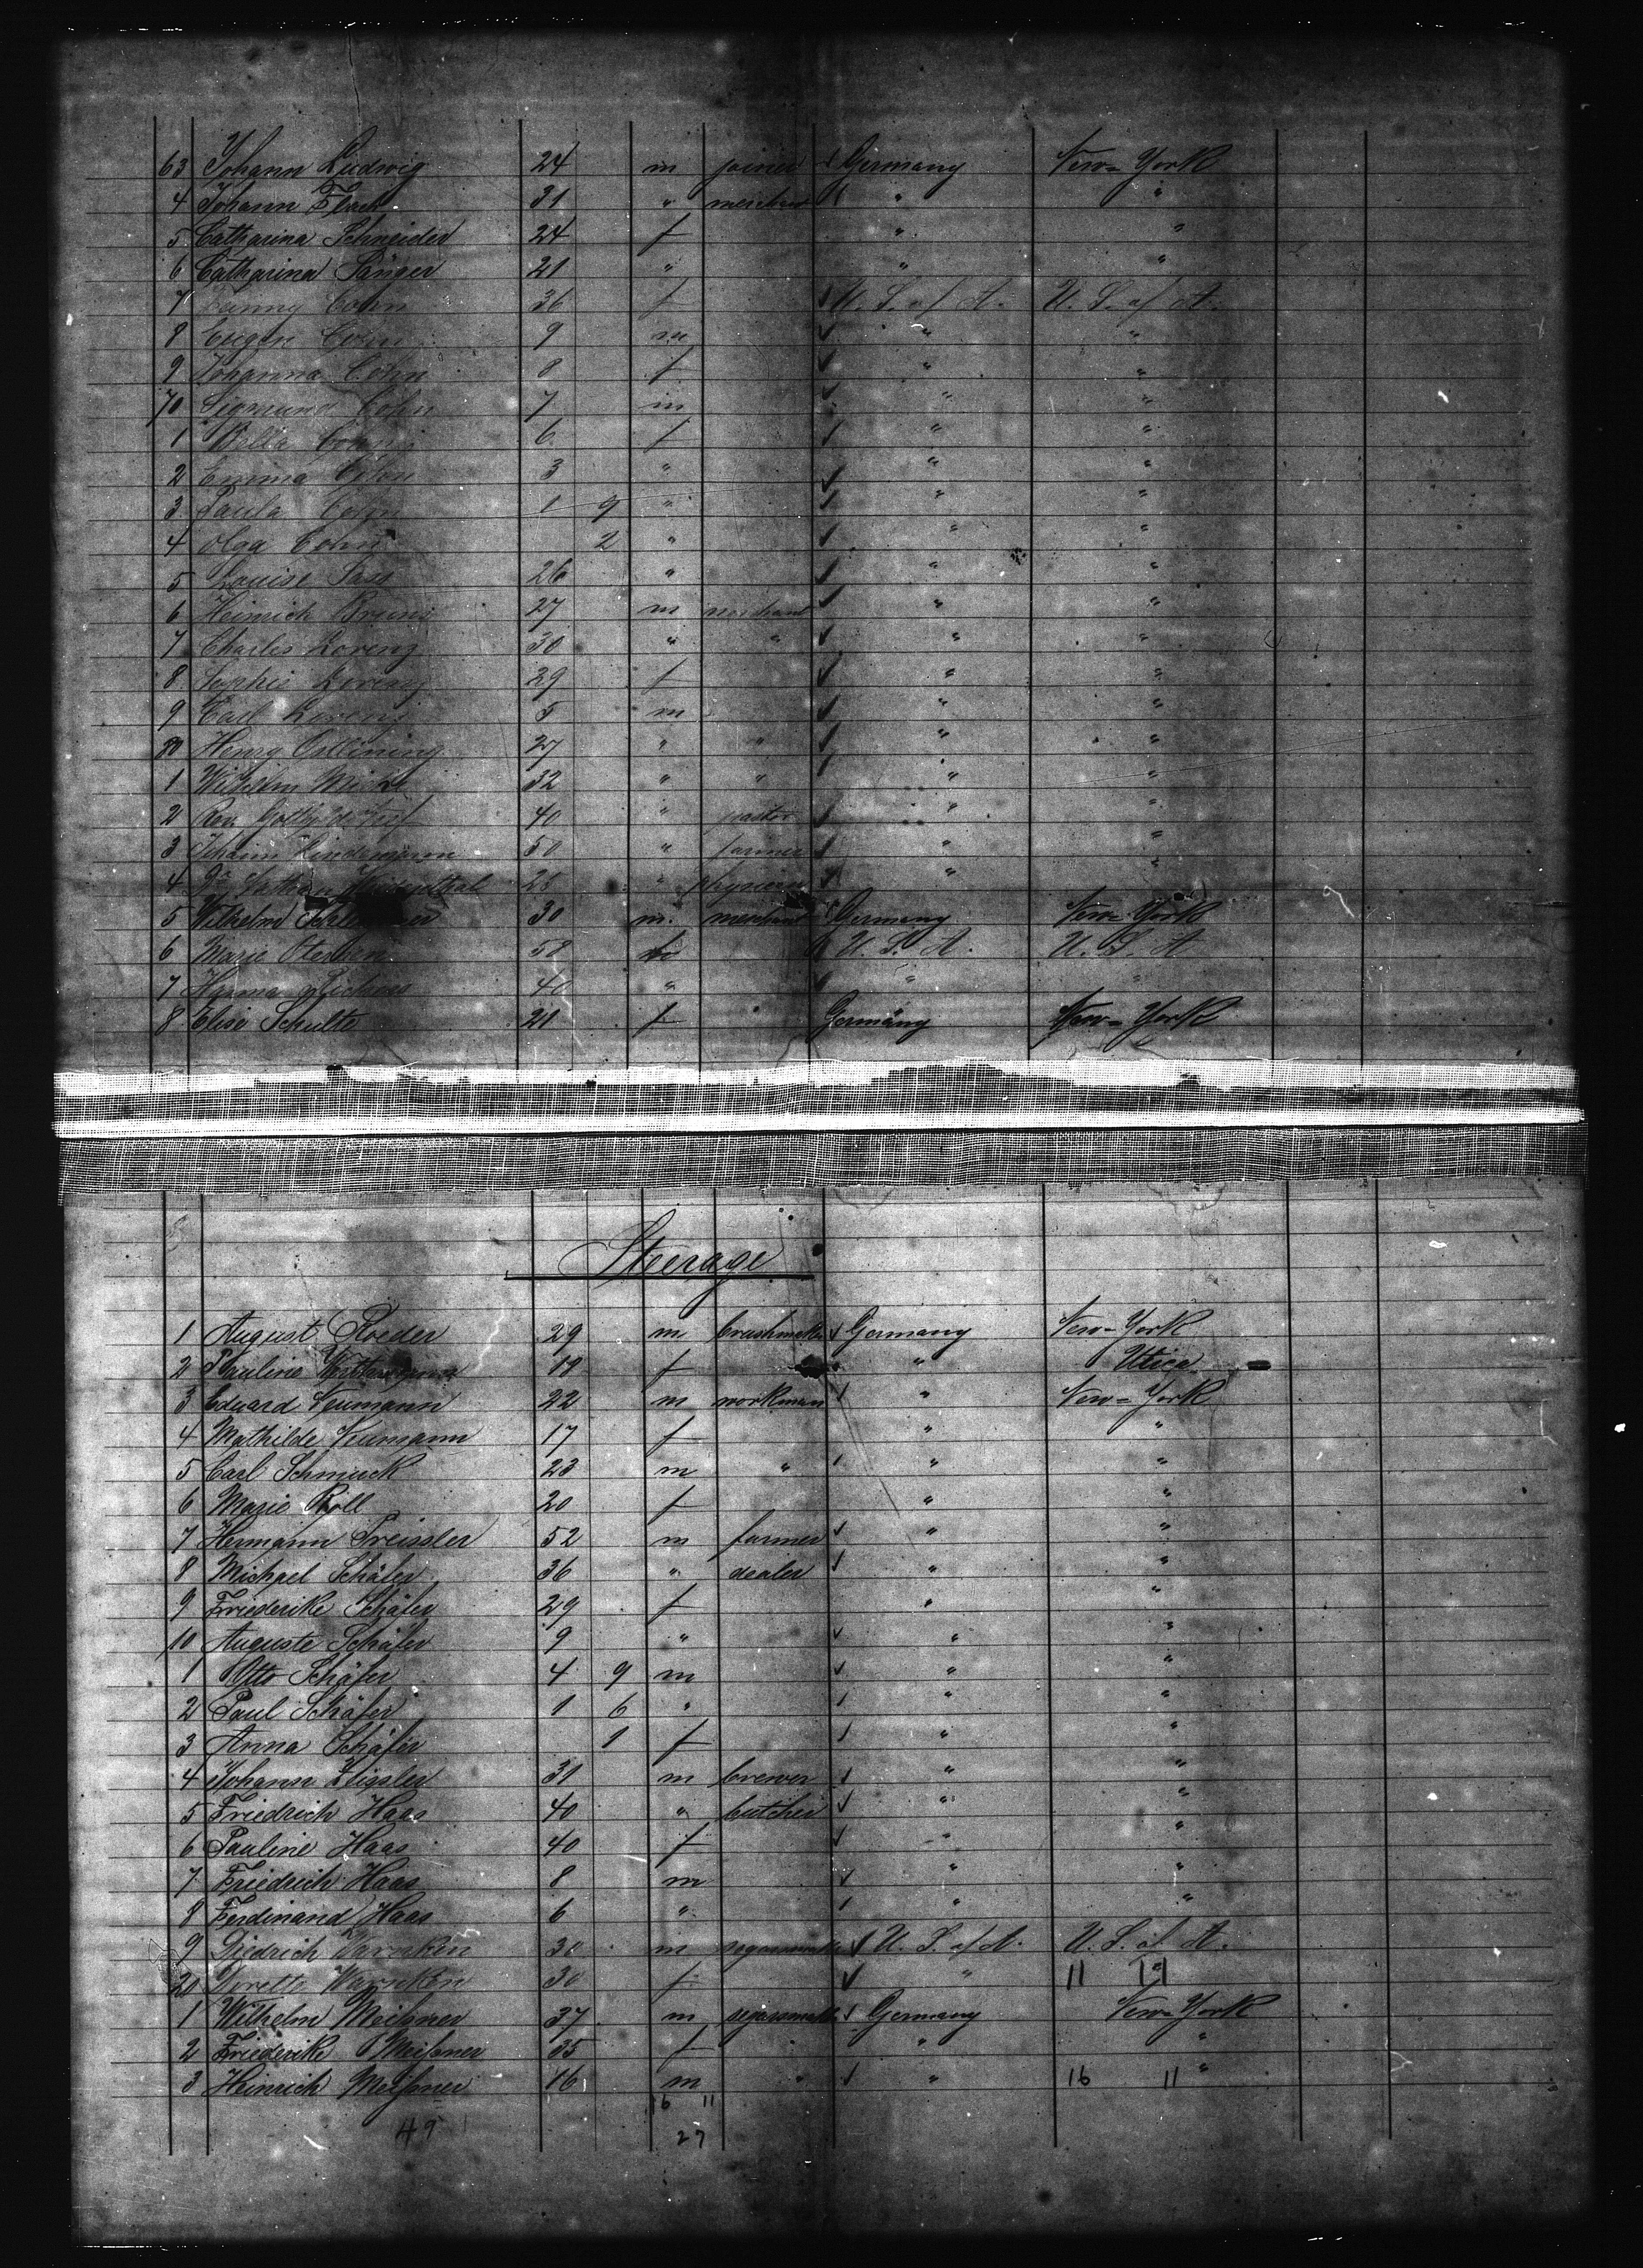 63 Johann Ludwig 24 m joiner Germany New-York
4 Johann Flach 31 " merchant " "
5 Catharina Schneider 24 f " "
6 Catharina Sänger 21 " " "
7 Fanny Cohn 36 f U. S. of A. U. S. of A.
8 Eugen Cohn 9 m " "
9 Johanna Cohn 8 f " "
70 Sigmund Cohn 7 m " "
1 Bella Cohn 6 f " "
2 Emma Cohn 3 " " "
3 Paula Cohn 1 9 " " "
4 Olga Cohn 2 " " "
5 Louise Sass 26 " " "
6 Heinrich Bruns 27 m merchant " "
7 Charles Lorenz 30 " " " "
8 Sophie Lorenz 29 f " "
9 Carl Lorenz 5 m " "
80 Henry 27 " " " "
1 Wilhelm 32 " " " "
2 Rev. 40 " pastor " "
3 Johann Lindemann 50 " farmer " "
4 Dr. Nathan 28 " physician " "
5 Wilhelm 30 m. merchant Germany New-York
6 Marie 58 U. S. A. U. S. A
7 40 " " "
8 Elise Schulte 21 f Germany New-York
Steerage
1 August Roeder 29 m brushmaker Germany New-York
2 Pauline 18 f " Utica
3 Eduard Neumann 22 m workman " New-York
4 Mathilde Neumann 17 f " "
5 Carl Schmuck 23 m " " "
6 Marie Roll 20 f " "
7 Hermann Preissler 52 m farmer " "
8 Michael Schäfer 36 " dealer " "
9 Friederike Schäfer 29 f " "
10 Auguste Schäfer 9 " " "
1 Otto Schäfer 4 9 m " "
2 Paul Schäfer 1 6 " " "
3 Anna Schäfer 1 f " "
4 Johann Zissler 31 m brewer " "
5 Friedrich Haas 40 " butcher " "
6 Pauline Haas 40 f " "
7 Friedrich Haas 8 m " "
8 Ferdinand Haas 6 " " "
9 Diedrich Warnken 30 m segarmaker U. S. of A. U. S. of A.
20 Dorette Warnken 30 f " 11
1 Wilhelm Meißner 37 m segarmaker Germany New-York
2 Friederike Meißner 35 f " "
3 Heinrich Meißner 16 m " " 16 11 "
16 11
49 27